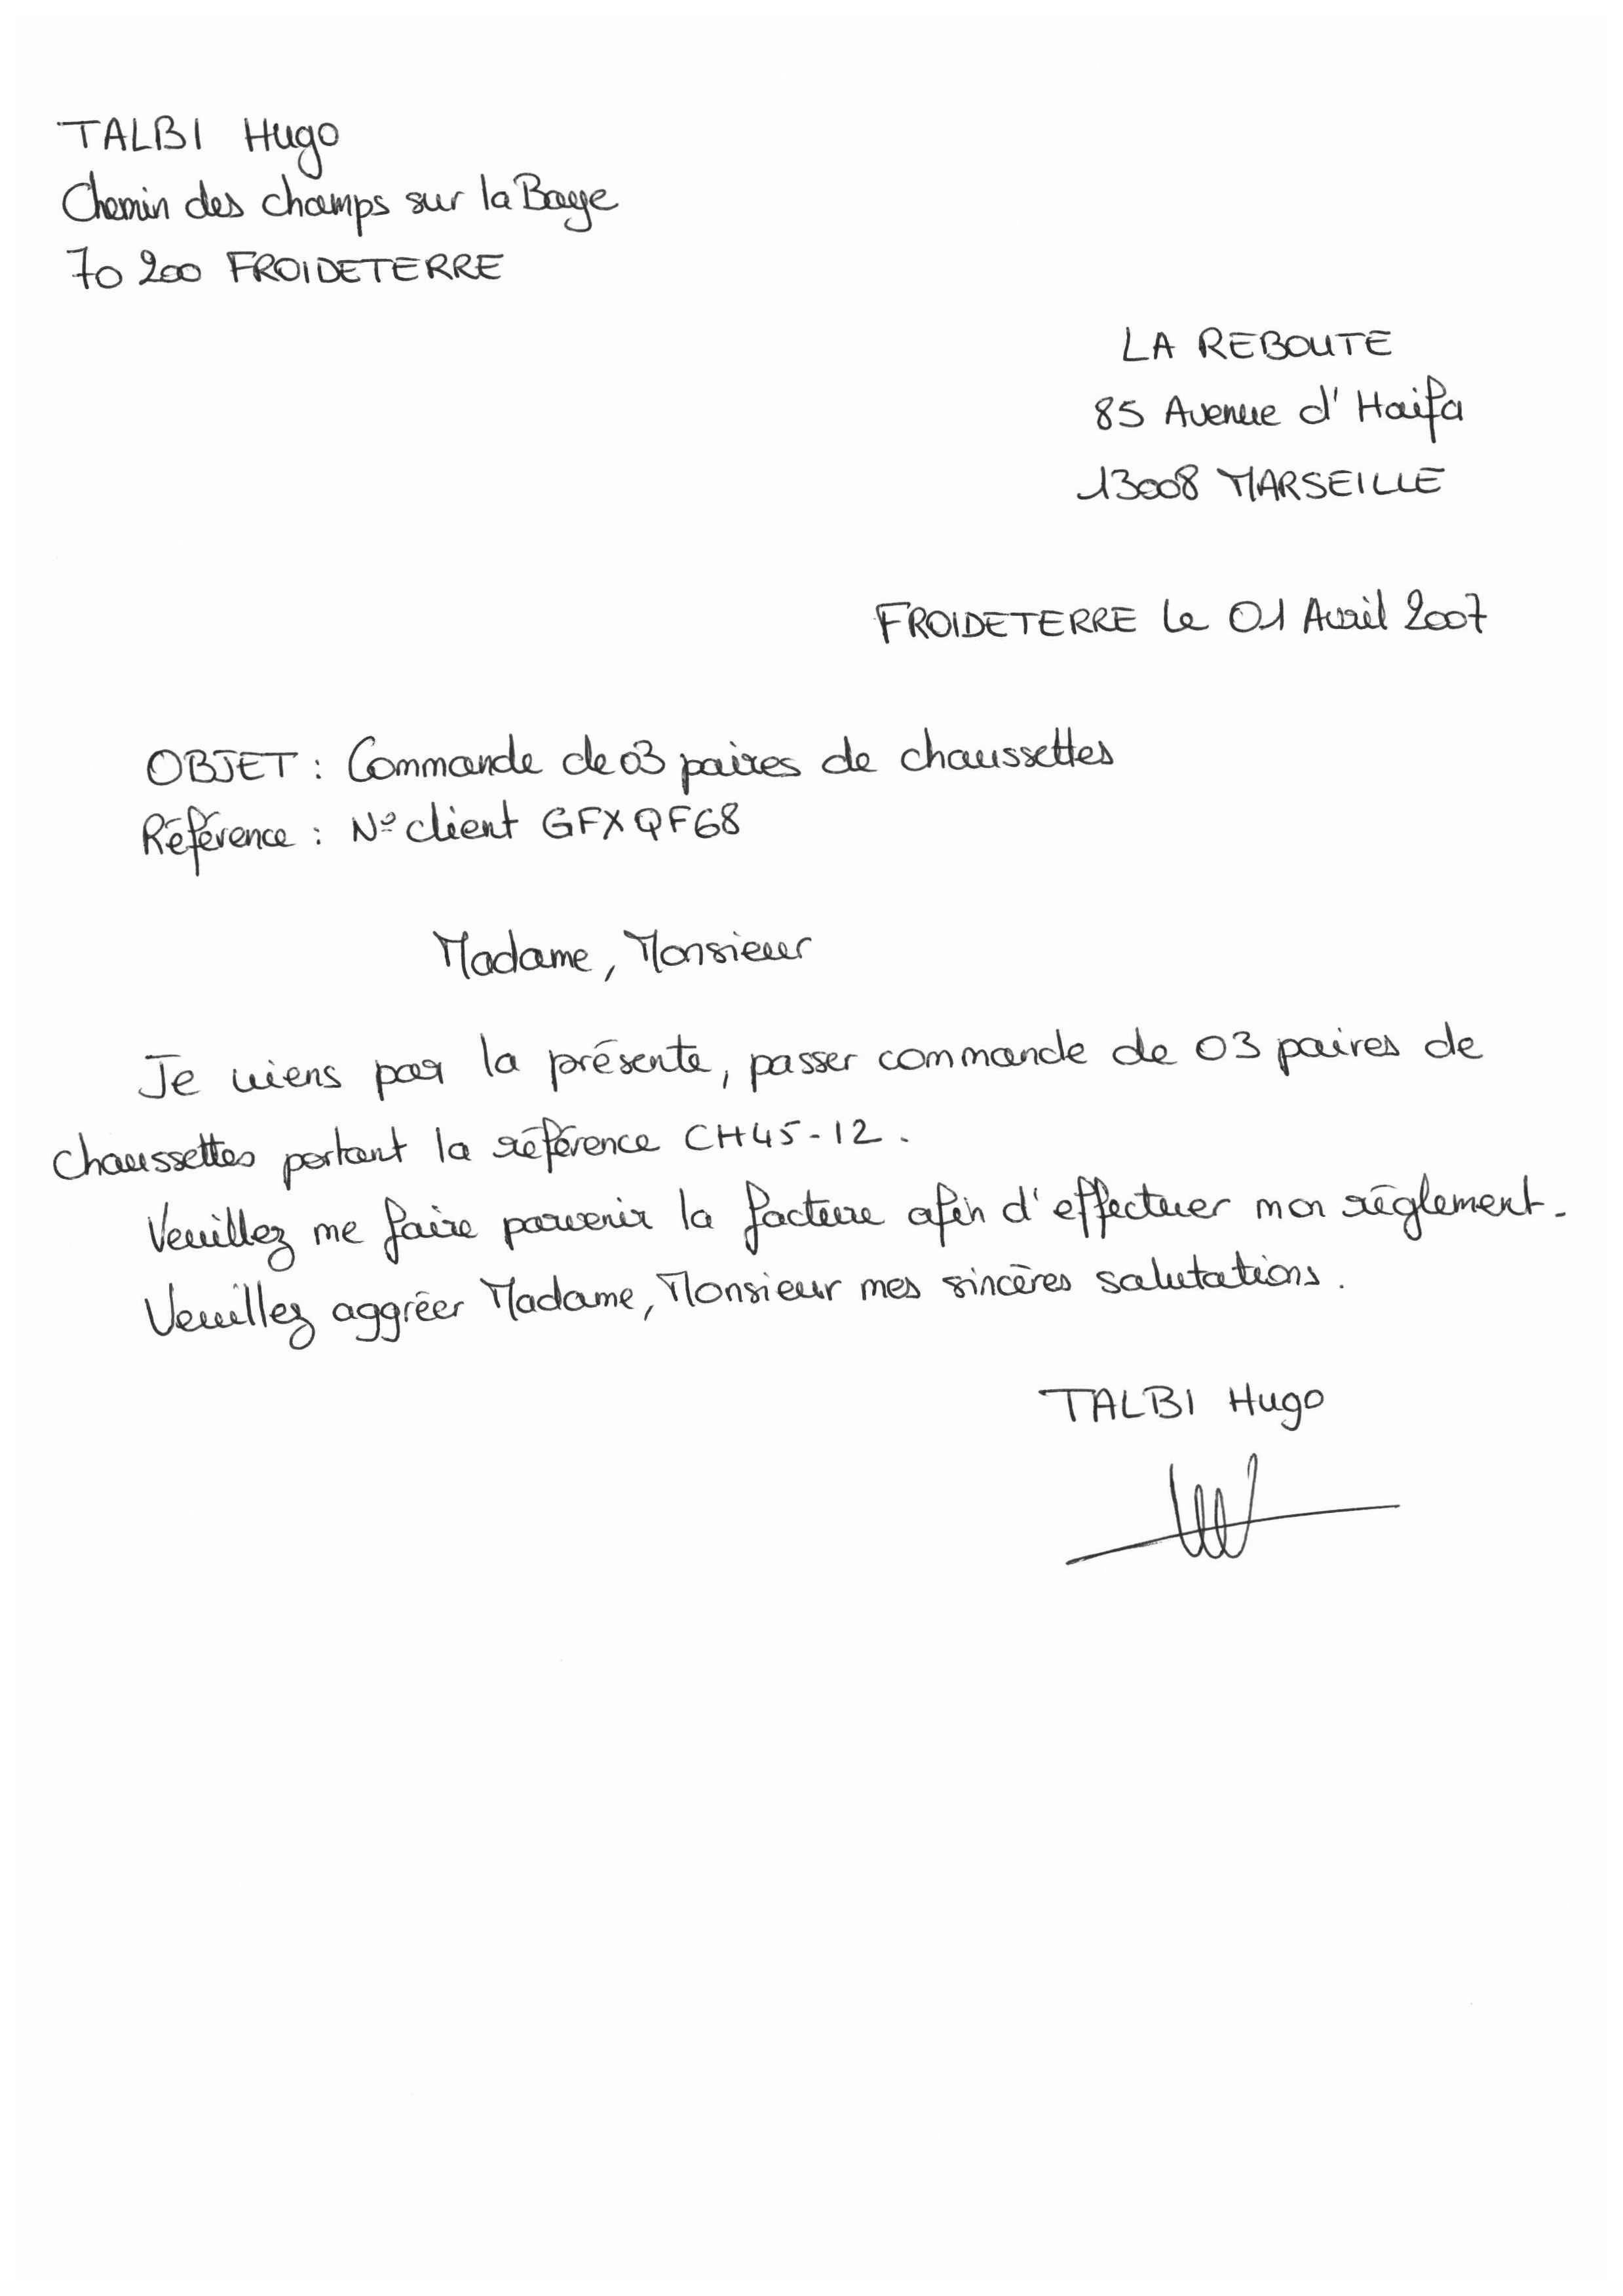 TALBI Hugo
Chemin des champs sur la Baye
70 200 FROIDETERRE
LA REBOUTE
85 Avenue d'Haifa
13008 MARSEILLE
FROIDETERRE le 01 Avril 2007
OBJET : Commande de 03 paires de chaussettes
Référence : N° client GFXQF68
Madame, Monsieur
Je viens par la présente, passer commande de 03 paires de
chaussettes portant la référence CH45-12.
Veuillez me faire parvenir la facture afin d'effectuer mon règlement.
Veuillez aggréer Madame, Monsieur mes sincères salutations.
TALBI Hugo